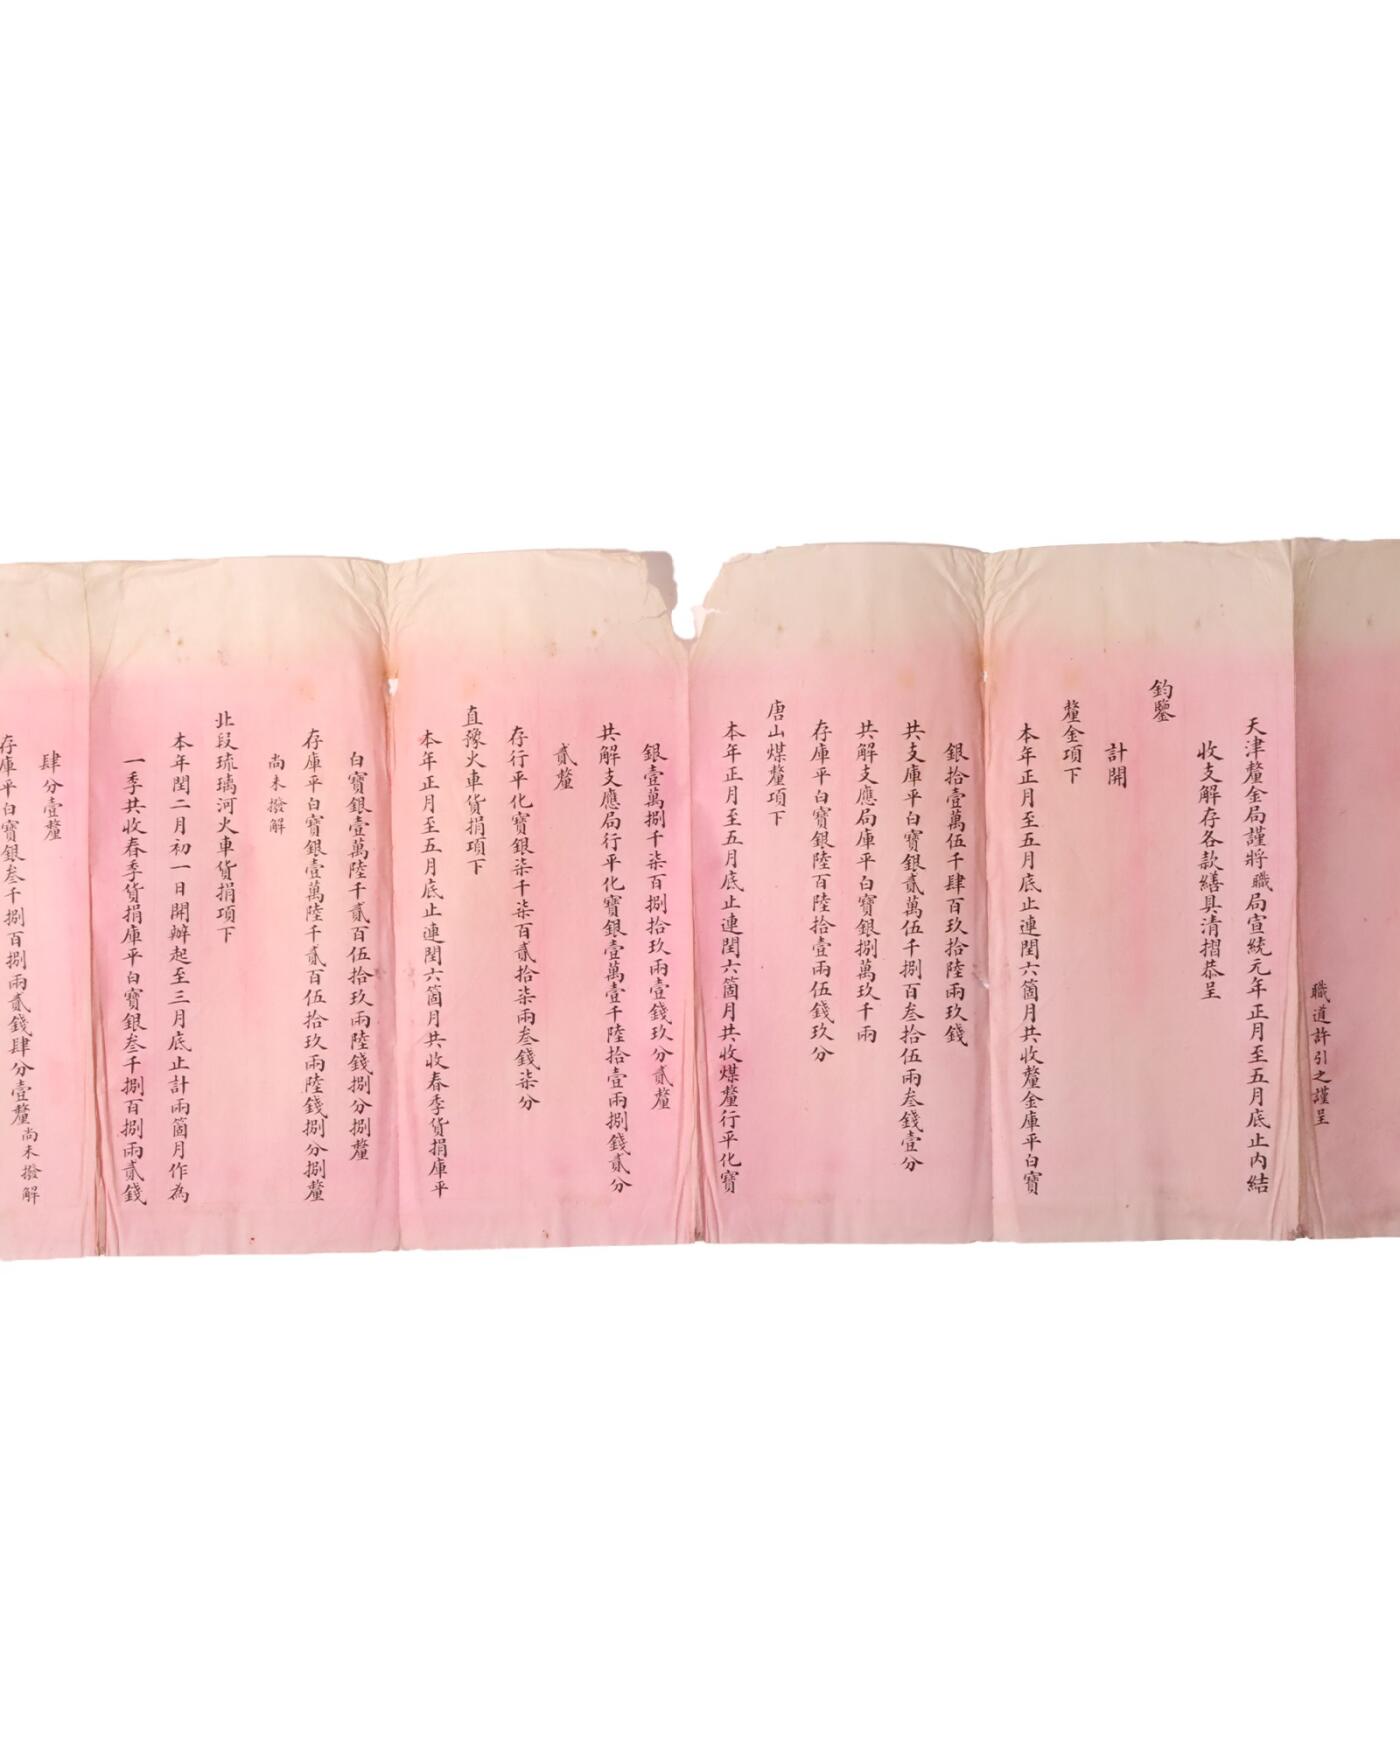 職道許引之謹呈
天津釐金局謹將職局宣統元年正月至五月底止內結
收支解存各款繕具清摺恭呈
鈞鑒
計開
釐金項下
本年正月至五月底止連閏六箇月共收釐金庫平白寶
銀拾壹萬伍千肆百玖拾陸兩玖錢
共支庫平白寶銀貳萬伍千捌百叁拾伍兩叁錢壹分
共解支應局庫平白寶銀捌萬玖千兩
存庫平白寶銀陸百陸拾壹兩伍錢玖分
唐山煤釐項下
本年正月至五月底止連閏六箇月共收煤釐行平化寶
銀壹萬捌千柒百捌拾玖兩壹錢玖分貳釐
共解支應局行平化寶銀壹萬壹千陸拾壹兩捌錢貳分
貳釐
存行平化寶銀柒千柒百貳拾柒兩叁錢柒分
直豫火車貨捐項下
本年正月至五月底止連閏六箇月共收春季貨捐庫平
白寶銀壹萬陸千貳百伍拾玖兩陸錢捌分捌釐
存庫平白寶銀壹萬陸千貳百伍拾玖兩陸錢捌分捌釐
尚未撥解
北段琉璃河火車貨捐項下
本年閏二月初一日開辦起至三月底止計兩箇月作為
一季共收春季貨捐庫平白寶銀叁千捌百捌兩貳錢
肆分壹釐
存庫平白寶銀叁千捌百捌兩貳錢肆分壹釐尚未撥解